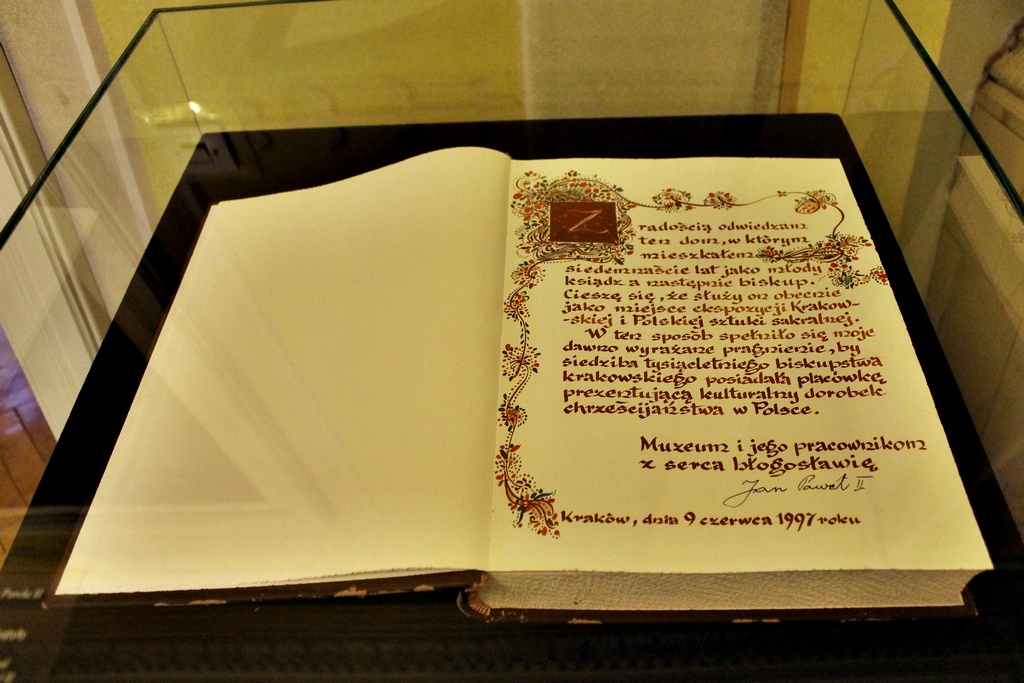 Z radością odwiedzam
ten dom, w którym
mieszkałem
siedemnaście lat jako młody
ksiądz a następnie biskup.
Cieszę się, że służy on obecnie
jako miejsce ekspozycji Krakow-
-skiej i Polskiej sztuki sakralnej.
W ten sposób spełniło się moje
dawno wyrażane pragnienie, by
siedziba tysiącletniego biskupstwa
krakowskiego posiadała placówkę
prezentującą kulturalny dorobek
chrześcijaństwa w Polsce.
Muzeum i jego pracownikom
z serca błogosławię
Jan Paweł II
Kraków, dnia 9 czerwca 1997 roku